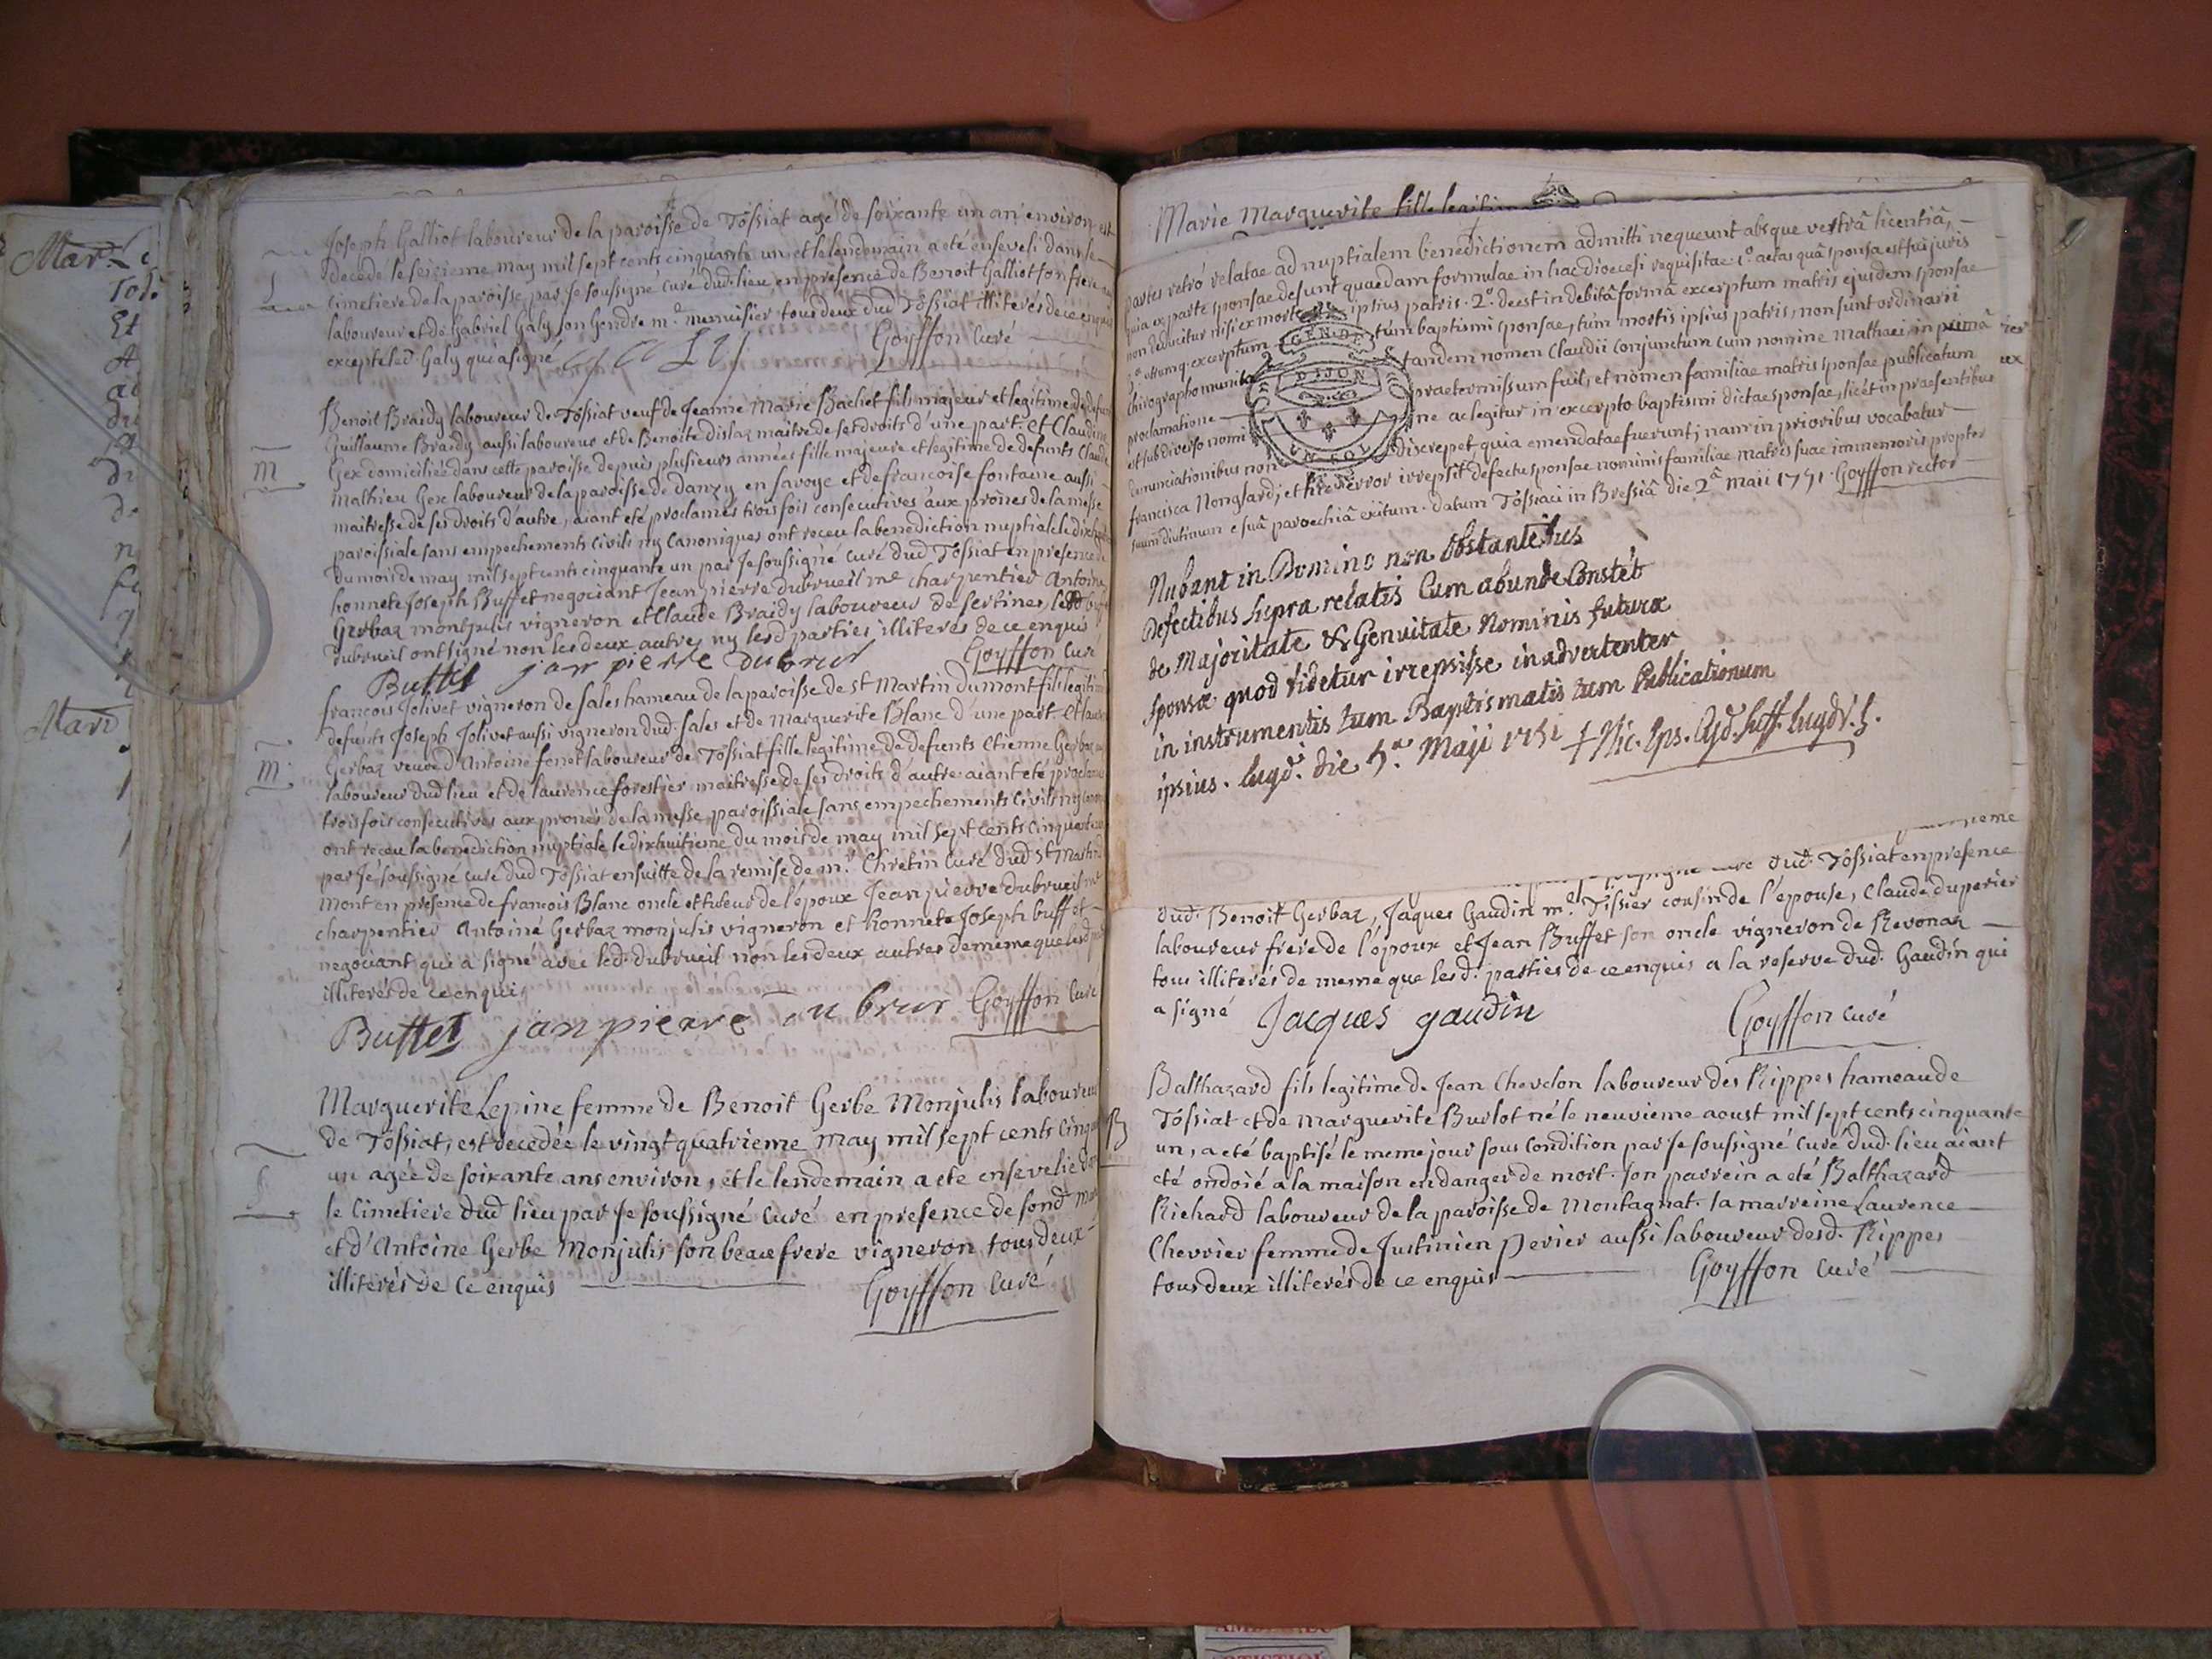 Joseph Galliot laboureur de la paroisse de Tossiat agé de soixante un an environ est
decedé le seizieme may mil sept cents cinquante un et le lendemain a eté enseveli dans le
cimetiere de la paroisse par Je soussigné curé dud. lieu en presence de Benoit Galliot son frere
laboureur et de Gabriel Galy son Gendre m.e menuisier tous deux dud Tossiat illiterés de ce enquis
excepté led. Galy qui a signé galy Goyffon Curé
Benoit Braidy laboureur de Tossiat veuf de Jeanne Marie Bachet fils majeur et legitime de defunt
Guillaume Braidy aussi laboureur et de Benoite dislaz maitre de ses droits d'une part. et Claudine
M
Gex domiciliée dans cette paroisse depuis plusieurs années fille majeure et legitime de defunts Claude
Mathieu Gex laboureur de la paroisse de Danzy en savoye et de francoise fontaine aussi
maitresse de ses droits d'autre, aiant eté proclamés trois fois consecutives aux prônes de la messe
paroissiale sans empechements civils ny canoniques ont receu la benediction nuptiale le
du mois de may mil sept cents cinquante un par Je soussigné Curé dud Tossiat en presence
honnete Joseph Buffet negociant Jean pierre dubrueil m.e charpentier Antoine
Gerbaz monjulis vigneron et Claude Braidy laboureur de sertines, led
dubrueil ont signé non les deux autres ny lesd parties illiterés de ce enquis
Buffet jan pierre dubrur Goyffon Curé
francois Jolivet vigneron de sales hameau de la paroisse de St Martin dumont fils legitime
defunts Joseph Jolivet aussi vigneron dud. sales et de Marguerite Blanc d'une part. et
M
Gerbaz veuve d'Antoine fonet laboureur de Tossiat fille legitime de defunts Etienne Gerbaz
laboureur dud lieu et de laurence forestier maitresse de ses droits d'autre aiant eté proclamés
trois fois consecutives aux prones de la messe paroissiale sans empechements civils ny
ont receu la benediction nuptiale le dixhuitieme du mois de may mil sept cents cinquante
par Je soussigné curé dud Tossiat ensuitte de la remise de m.r Chretin Curé dud St Martin
Mont en presence de francois Blanc oncle et tuteur de l'époux Jean pierre dubrueil m.e
charpentier Antoine Gerbaz monjulis vigneron et honnete Joseph buffet
negociant qui a signé avec led. dubrueil non les deux autres de meme que lesd
illiterés de ce enquis
Buffet jan pierre du brur Goyffon Curé
Marguerite Lepine femme de Benoit Gerbe Monjulis laboureur
de Tossiat, est decedée le vingt quatrieme may mil sept cents cinqu
un agée de soixante ans environ, et le lendemain a ete ensevelie
le Cimetiere dud lieu par Je soussigné Curé en presence de sond
et d'Antoine Gerbe Monjulis son beau frere vigneron, tous deux
illiterés de ce enquis Goyffon Curé
Marie Marguerite fille legitime
partes retrò relatae ad nuptialem benedictionem admitti nequeunt absque vestrâ licentiâ,
quia ex parte sponsae desunt quaedam formulae in hac dioecesi requisitae. 1.o aetas quâ sponsa est sui juris
non deducitur nisi ex morte ipsius patris. 2.o deest in debitâ formâ excerptum matris ejusdem sponsae
3.o utrumq. excerptum tùm baptismi sponsae, tùm mortis ipsius patris, non sunt ordinarii
chirographo munita tandem nomen Claudii conjunctum cum nomine Mathaei, in primâ
proclamatione praetermissum fuit, et nomen familiae matris sponsae publicatum
est sub diverso nomi ne ac legitur in excerpto baptismi dictae sponsae, licet in praesentibus
denunciationibus non discrepet, quia emendatae fuerunt; nam in prioribus vocabatur
francisca Nonglard; et hic error irrepsit defectu sponsae nominis familiae matris suae immemoris propter
suum diutinum e suâ paroechiâ exitum. datum Tossiaci in Bressiâ die 2.â Maii 1751. Goyffon rector
GEN DE
DIJON
Nubant in Domino non obstantibus
Defectibus supra relatis Cum abunde Constet
de Majoritate & Genuitate Nominis futurae
sponsae quod videtur irrepsisse inadvertenter
in instrumentis tum Baptismatis tum Publicationum
ipsius. Lugd. die 5.a Maji 1751 + Nic. Eps. Suff. Lugd.
dud. Tossiat en presence
dud. Benoit Gerbaz, Jaques Gaudin m.e Tissier cousin de l'epouse, Claude duperier
laboureur frere de l'époux et Jean Buffet son oncle vigneron de Revonaz
tous illiterés de meme que lesd. parties de ce enquis a la reserve dud. Gaudin qui
a signé Jacques gaudin Goyffon Curé
B
Balthazard fils legitime de Jean Chevdon laboureur des Rippes hameau de
Tossiat et de marguerite Burlot né le neuvieme aoust mil sept cents cinquante
un, a eté baptisé le meme jour sous condition par Je soussigné curé dud. lieu aiant
eté ondoié a la maison en danger de mort. son parrein a eté Balthazard
Richard laboureur de la paroisse de Montagnat. la marreine Laurence
Chevrier femme de Justinien Perier aussi laboureur desd. Rippes
tous deux illiterés de ce enquis Goyffon Curé